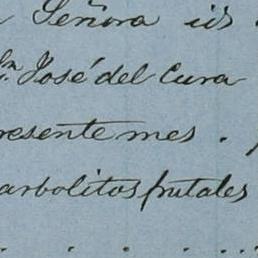 Señora id
José del Cura
resente mes.
arbolitos frutales